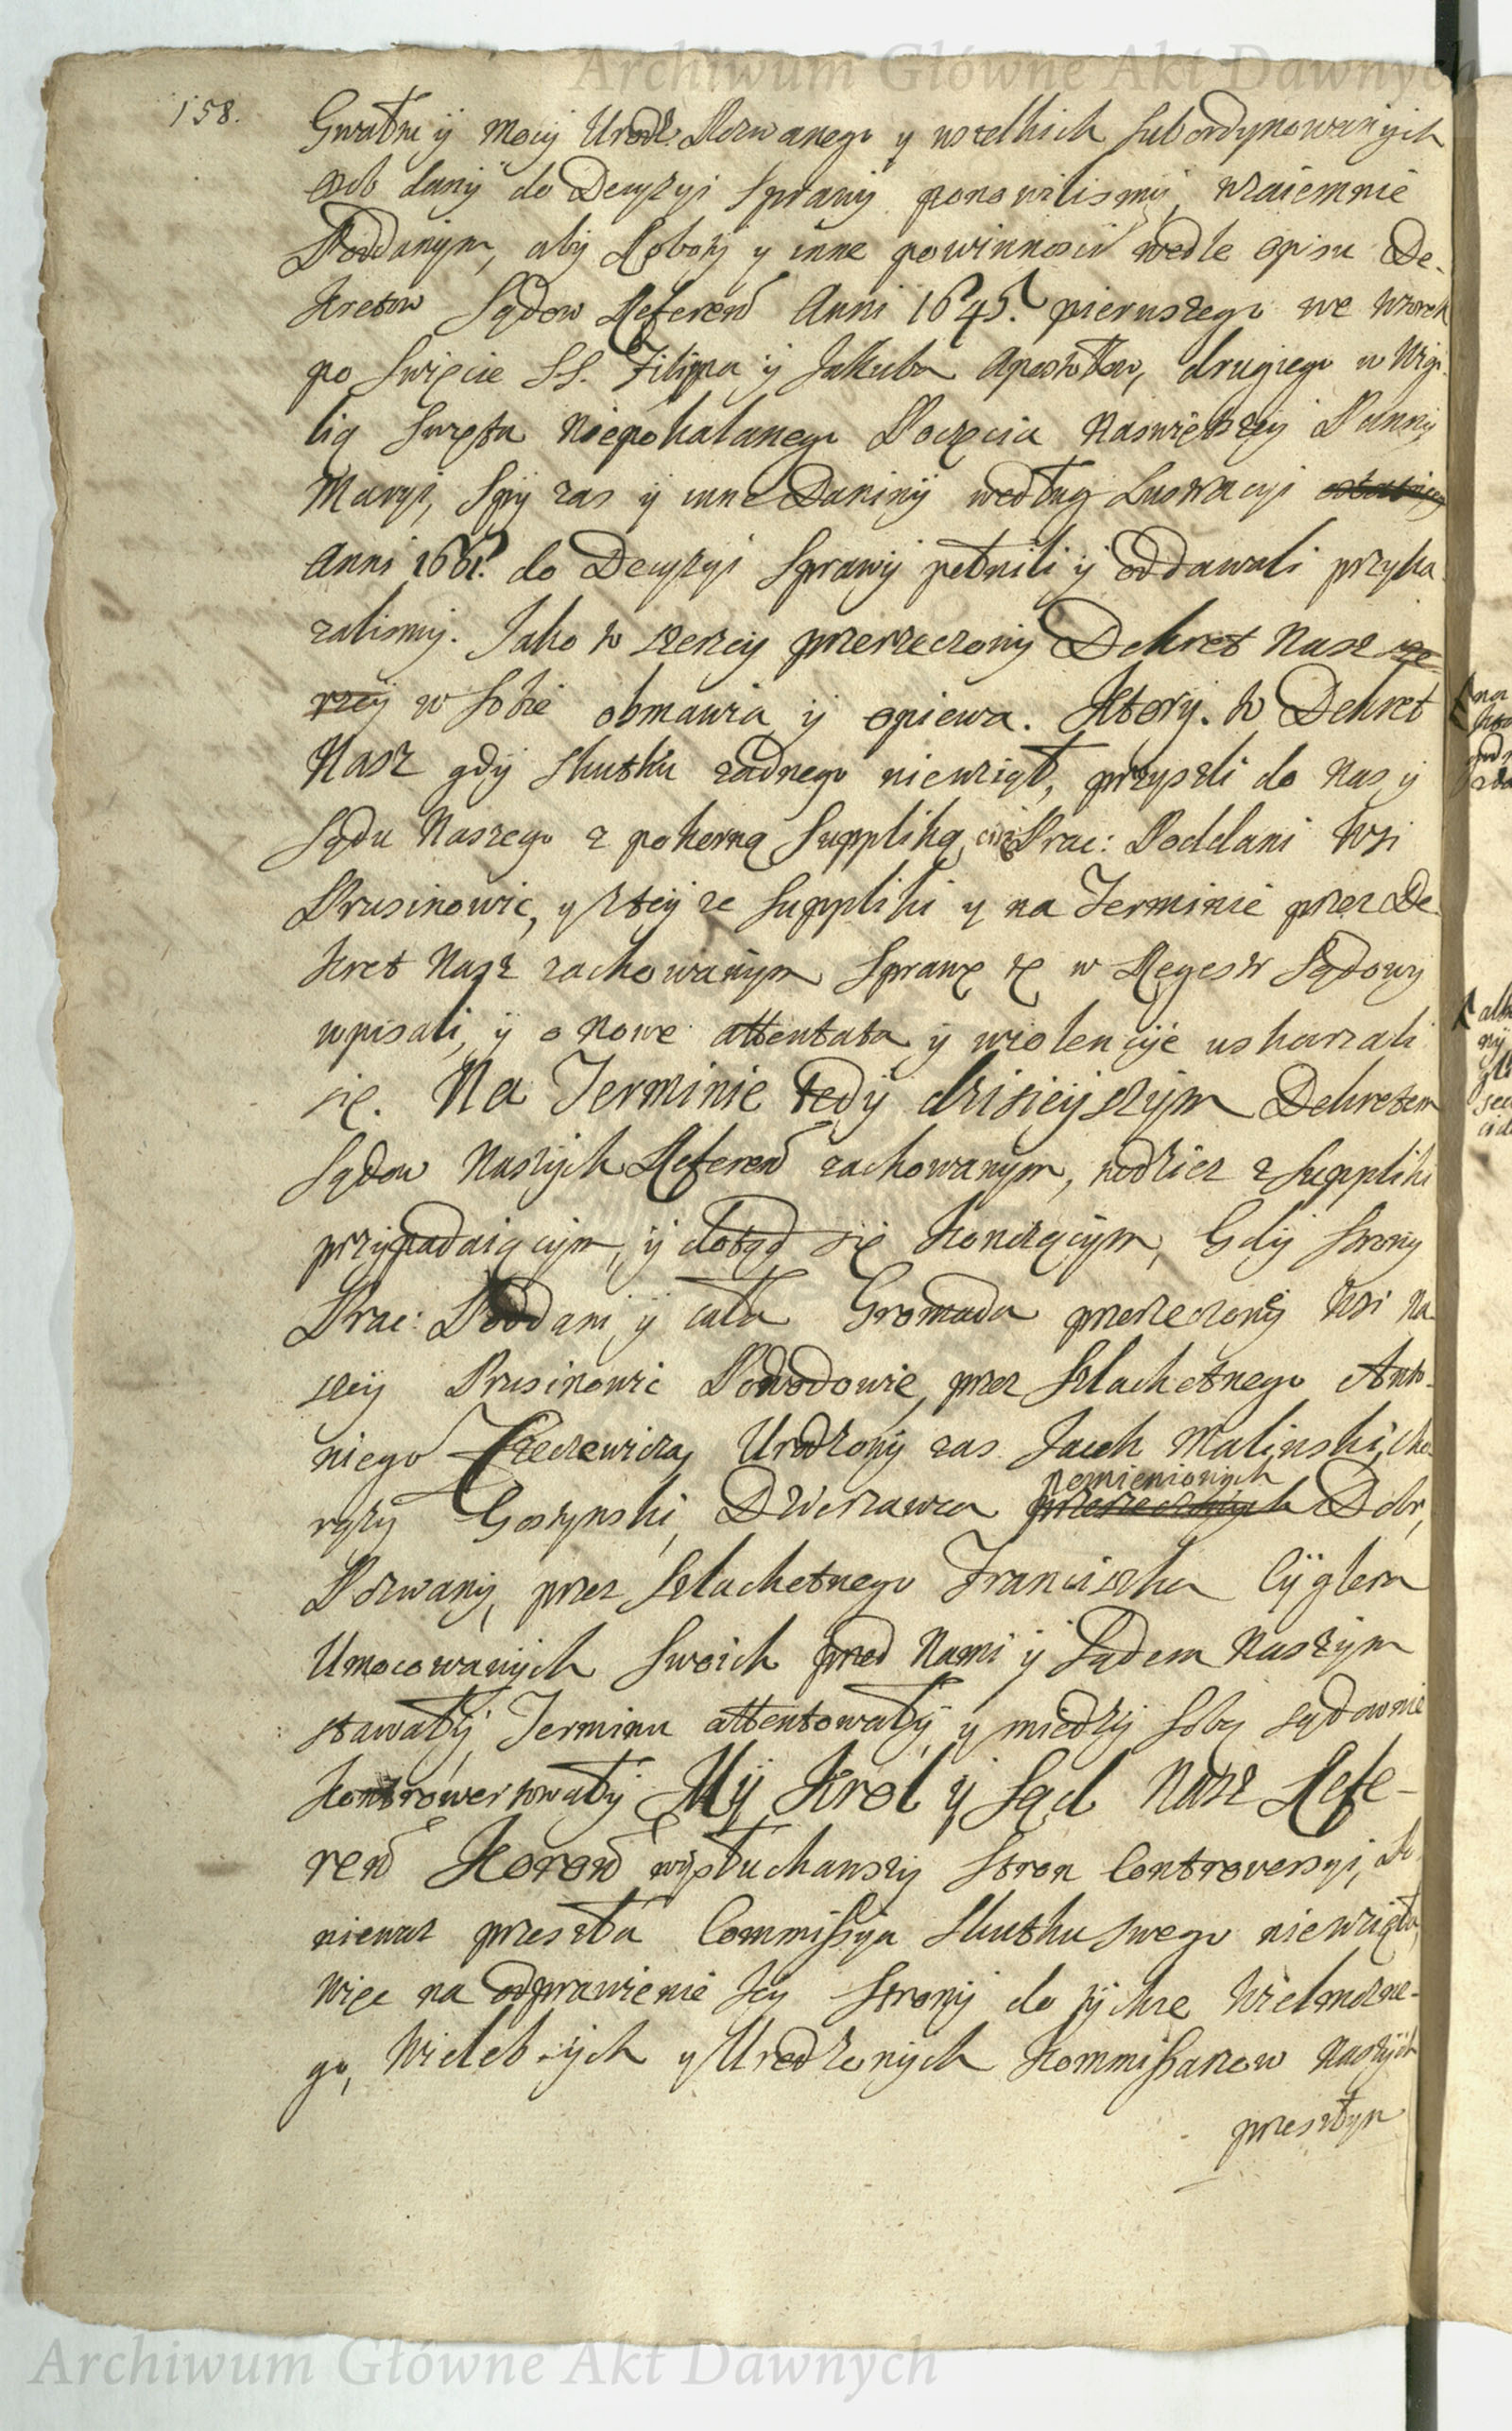 Archiwum Główne Akt Dawnych
158.
Gwałtu y mocy Urodz. Pozwanego y wszelkich subordynowanych
osob dany do Decyzyi Sprawy ponowilismy, wzaiemnie
Poddanym, aby Roboty y inne powinnosci wedle opisu De-
kretow Sądow Referen Anni 1645. pierwszego we wtorek
po Swięcie SS. Filipa y Jakuba Apostołow, drugiego w Wigi-
lią Swięta Niepokalanego Poczęcia Naswiętszey Panny
Maryi, Spy zas y inne Daniny według Lustracyi ostatniey
Anni 1661. do Decyzyi Sprawy pełnili y oddawali przyka-
zalismy. Jako to szerzey przerzeczony Dekret Nasz sze-
rzey w sobie obmawia y opiewa. Ktory to Dekret
Nasz gdy skutku zadnego niewziął, przyszli do Nas y
Sądu Naszego z pokorną Suppliką, ciż Prac: Poddani Wsi
Prusinowic, y z teyże Suppliki y na Terminie przez De-
kret Nasz zachowanym Sprawę tę w Regestr Sądowy
wpisali, y o nowe attentata y wiolencye uskarzali
się. Na Terminie tedy dzisieyszym Dekretem
Sądow Naszych Referen zachowanym, y odzież z Suppliki
przypadaiącym, y dotąd się kończącym, Gdy strony
Prac: Poddani y cała Gromada przerzeczoney Wsi Na-
szey Prusinowic Powodowie, przez Szlachetnego Anto-
niego Trzeciewicza, Urodzony zas Jacek Malinski, cho-
pomienionych
rązy Gostynski, Dzierzawca przerzeczonych Dobr,
Pozwany, przez Szlachetnego Franciszka Cyglera
Umocowanych swoich przed Nami y Sądem Naszym
stawały, Terminu attentowały, y między sobą sądownie
kontrowertowały My Krol y Sąd Nasz Refe-
ren Koron wysłuchawszy stron Controversyi, Po-
niewaz przeszła Commissya skutku swego niewzięła,
więc na odprawienie Jey strony do tychze Wielmozne-
go, Wielebnych y Urodzonych Kommissarzow Naszych
przeszłym
Archiwum Główne Akt Dawnych